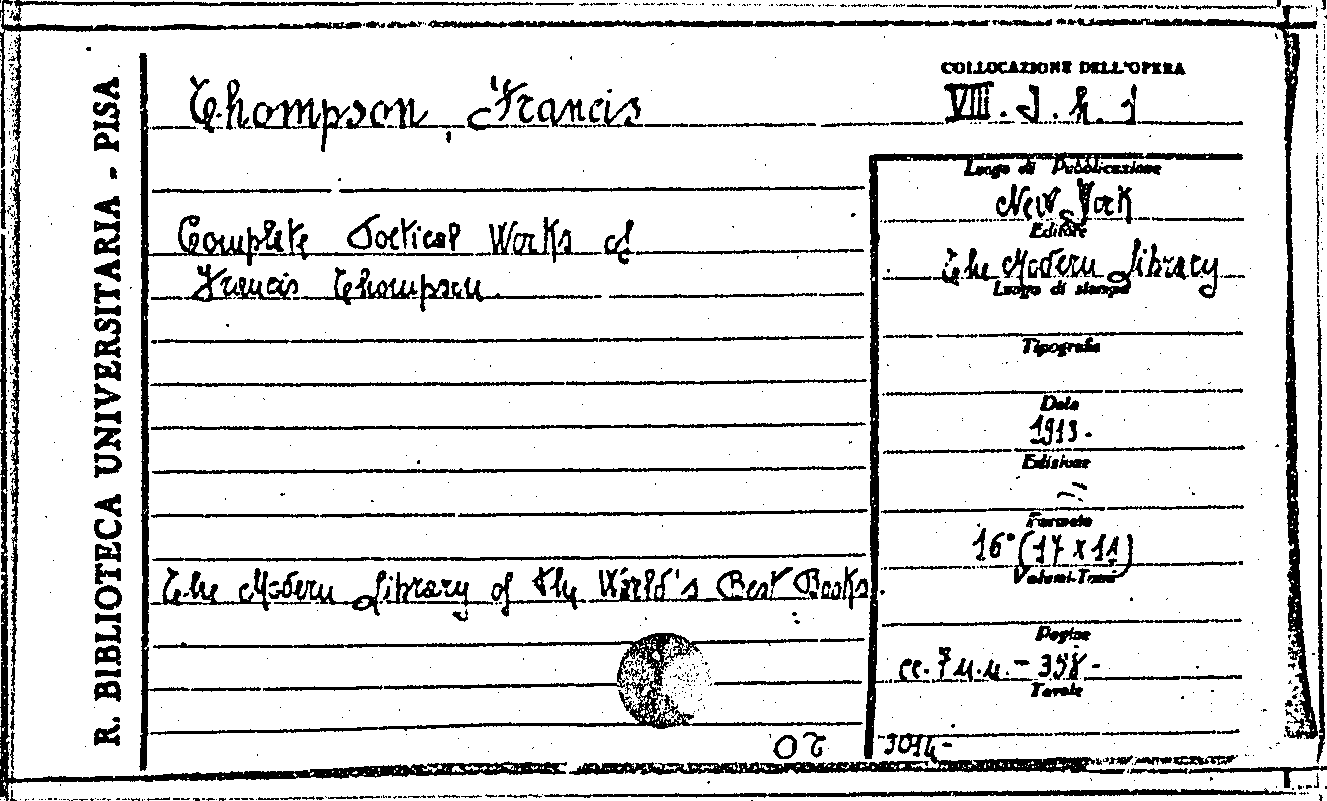 R. BIBLIOTECA UNIVERSITARIA - PISA
Thompson, Francis
COLLOCAZIONE DELL'OPERA
VIII. J. h. 1
Complete Poetical Works of
Francis Thompson.
Luogo di Pubblicazione
New York
Editore
The Modern Library
Luogo di stampa
Tipografia
Data
1913.
Edizione
Formato
16° (17 x 11)
Volumi-Tomi
The Modern Library of the World's Best Books.
Pagine
cc. 7 n.n. - 358 -
Tavole
3014-